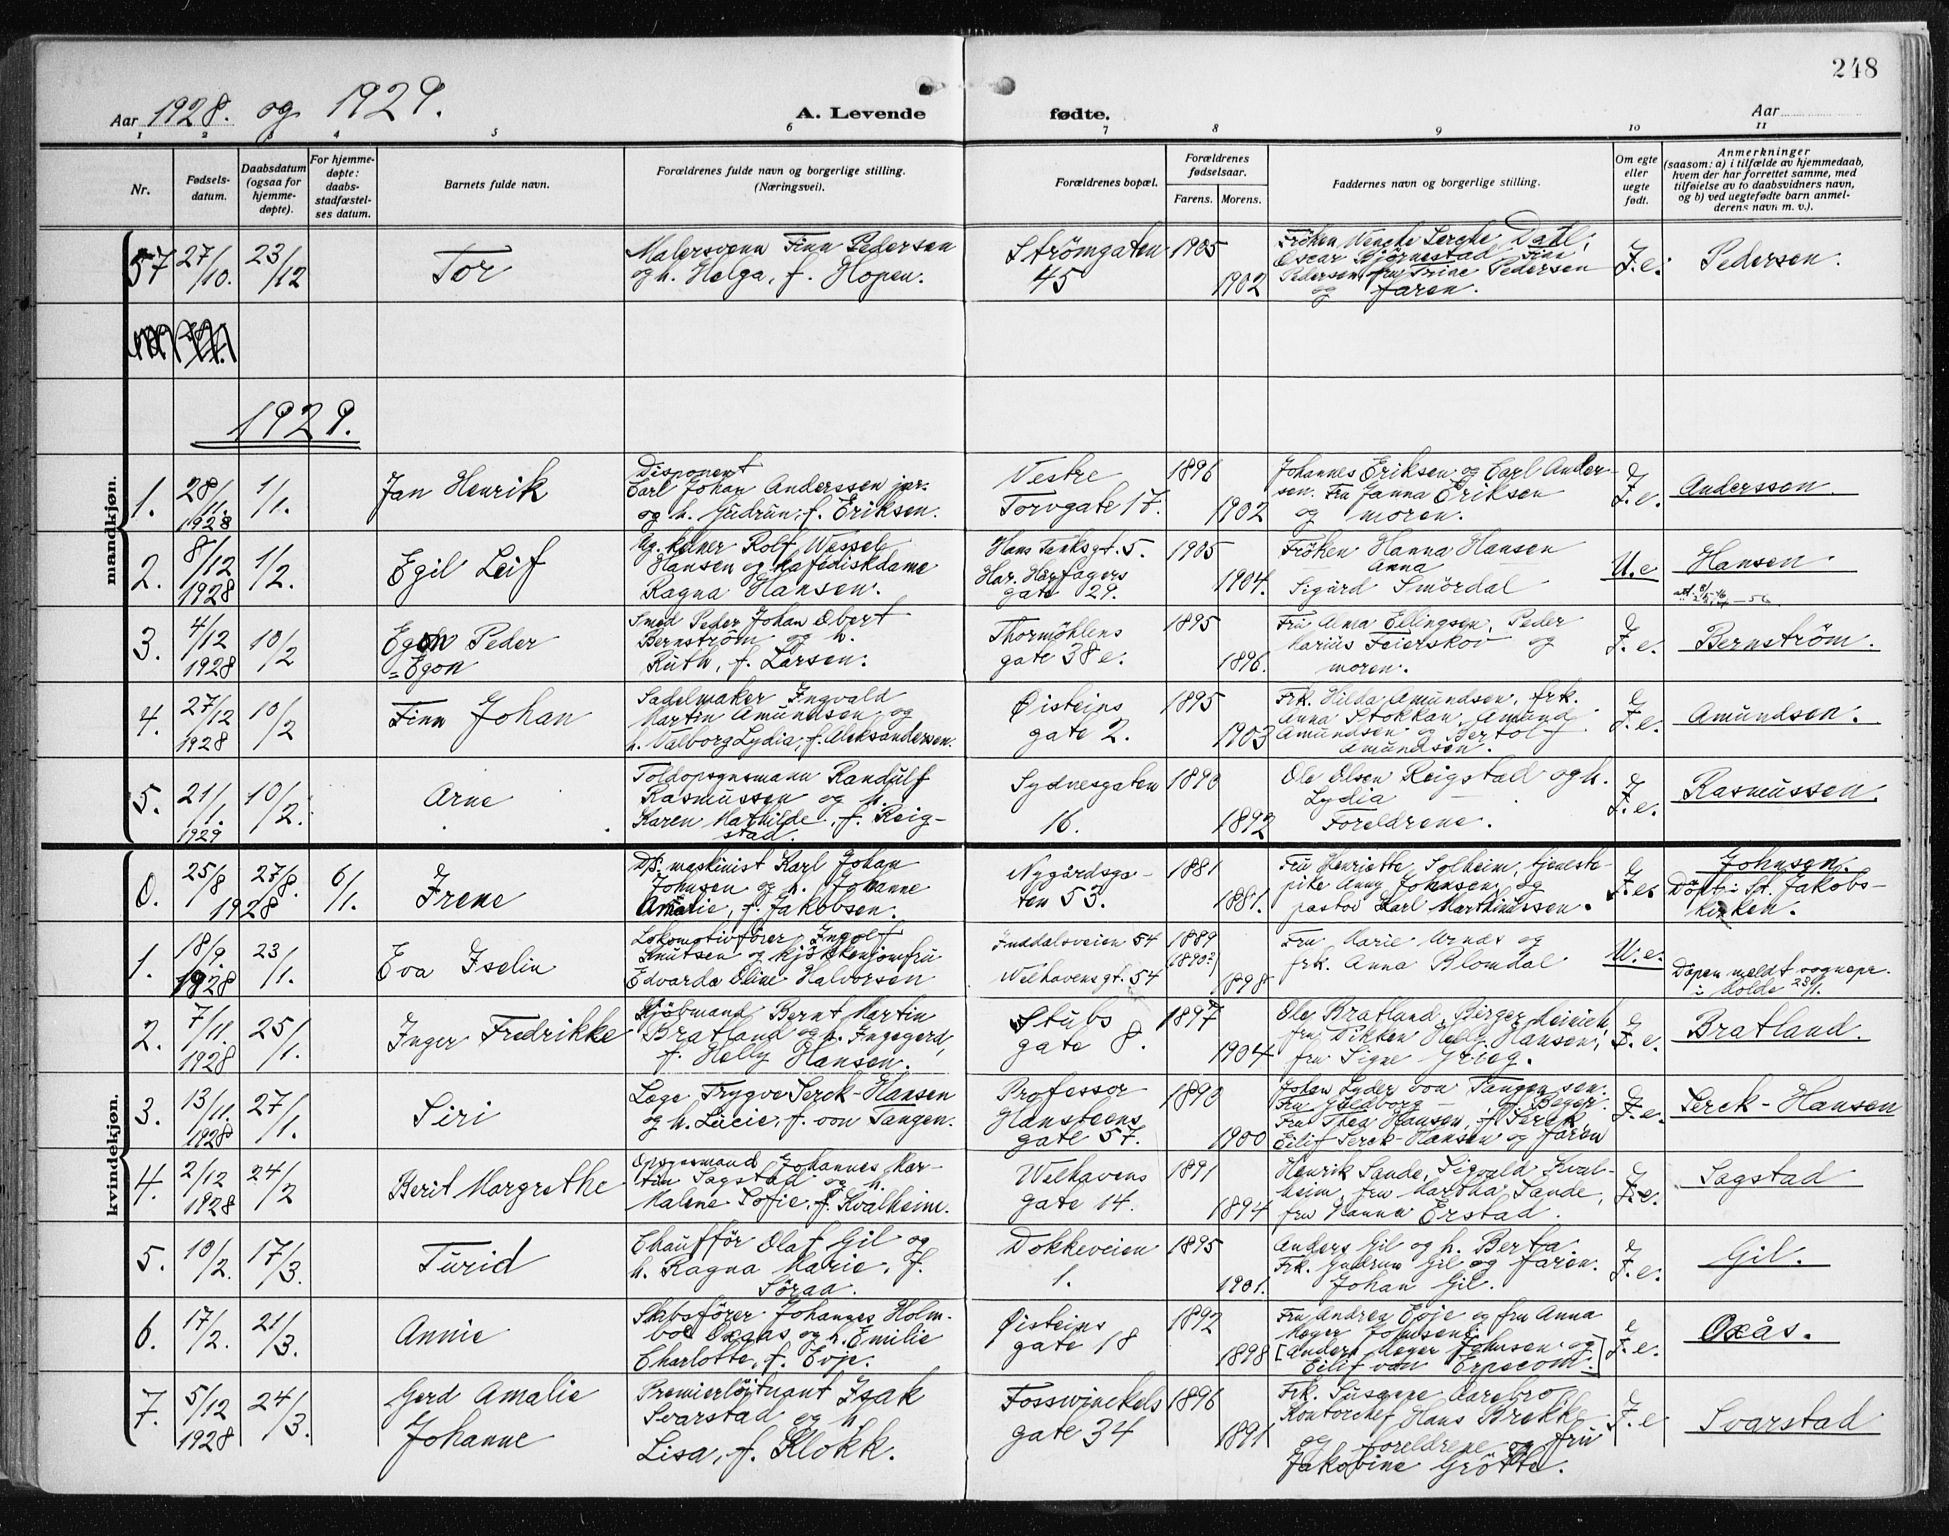 248
Aar 1928. og 1929.
A. Levende fødte.
Aar
1 2 3 4 5 6 7 8 9 10 11
Nr.
Fødsels-
datum.
Daabsdatum
(ogsaa for
hjemme-
døpte).
For hjemme-
døpte:
daabs-
stadfæstel-
ses datum.
Barnets fulde navn.
Forældrenes fulde navn og borgerlige stilling.
(Næringsvei).
Forældrenes bopæl.
Forældrenes
fødselsaar.
Farens. Morens.
Faddernes navn og borgerlige stilling.
Om egte
eller
uegte
født.
Anmerkninger
(saasom: a) i tilfælde av hjemmedaab,
hvem der har forrettet samme, med
tilføielse av to daabsvidners navn,
og b) ved uegtefødte barn anmel-
derens navn m. v.).
57 27/10. 23/12 Tor
Malersvenn Finn Pedersen
og h. Helga, f. Hopen.
Strømgaten
45
1905 1902
Frøken Wenche Lerche Dahl,
Oscar Bjørnestad, Fini
Pedersen, fru Trine Pedersen
og faren.
F. e. Pedersen.
1929.
mandkjøn.
1. 28/11. 1928 1/1. Jan Henrik
Disponent
Carl Johan Anderssen jur.
og h. Gudrun, f. Eriksen.
Vestre
Torvgate 17.
1896 1902
Johannes Eriksen og Carl Ander-
sen. Fru Janna Eriksen
og moren.
F. e. Anderssen.
2. 8/12 1928 1/2. Egil Leif
Ug. kelner Rolf Wessel
Hansen og kafediskdame
Ragna Hansen.
Hans Tanksgt. 5.
Har. Hårfagers
gate 29.
1905 1904.
Frøken Hanna Hansen
Anna
Sigurd Smørdal
U. e Hansen.
3. 4/12 1928 10/2 Egon Peder
= Egon
Smed Peder Johan Obert
Bernstrøm og h.
Ruth, f. Larsen.
Thormøhlens
gate 38 e.
1895 1896.
Fru Ama Ellingsen, Peder
Marius Feierskov og
moren.
F. e. Bernstrøm.
4. 27/12 1928 10/2 Finn Johan
Sadelmaker Ingvald
Martin Amundsen og
h. Valborg Lydia, f. Aleksandersen.
Øisteins
gate 2.
1895 1903
Frk. Hilda Amundsen, frk.
Anna Stokkan, Amund
Amundsen og Bertolf
Amundsen.
F. e. Amundsen.
5. 21/1. 1929 10/2. Arne
Toldopsynsmann Randulf
Rasmussen og h.
Karen Mathilde, f. Reig-
stad.
Sydnesgaten
16.
1890 1892
Ole Olsen Reigstad og h.
Lydia —
Foreldrene.
F. e. Rasmussen.
kvindekjøn.
0. 25/8 27/8. 1928 6/1. Irene
D/s. maskinist Karl Johan
Johnsen og h. Johanne
Amalie, f. Jakobsen.
Nygårdsga-
ten 53.
1881 1881.
Fru Henriette Solheim, tjeneste-
pike Anny Johnsen, og
pastor Karl Marthinussen.
F. e. Johnsen.
Døpt i St. Jakobs-
kirken.
1. 18/9. 1928 23/1. Eva Iselin
Lokomotivfører Ingolf
Knutsen og kjøkkenjomfru
Edvarda Oline Halvorsen
Inddalsveien 54
Welhavensgt. 54
1889 (1890?) 1898.
Fru Marie Urnæs og
frk. Anna Blomdal
U. e. Dåpen meldt sognepr.
i Molde 23/1.
2. 7/11. 1928 25/1. Inger Fredrikke
Kjøbmand Bernt Martin
Bratland og h. Ingegerd,
f. Helly Hansen.
Stubs
gate 8.
1897 1904
Ole Bratland, Birger Meinich,
fru Dikken Helly Hansen,
fru Signe Grieg.
F. e. Bratland.
3. 13/11. 1928 27/1. Siri
Læge Trygve Serck-Hansen
og h. Lucie, f. von Tangen.
Professor
Hansteens
gate 57.
1890 1900
Johan Lyder von Tangen sen.
Fru Gjedborg — og Beyer.
Fru Thea Hansen, f. Serck,
Eilif Serck-Hansen og faren
F. e. Serck-Hansen
4. 2/12 1928 24/2 Berit Margrethe
Opsynsmand Johannes Mar-
tin Sagstad og h.
Malene Sofie, f. Kvalheim.
Welhavens
gate 14.
1891 1894
Henrik Sande, Sigvald Kval-
heim, fru Martha Sande,
fru Hanna Erstad.
F. e. Sagstad
5. 10/2. 17/3. Turid
Chauffør Olaf Gil og
h. Ragna Marie, f.
Søraa.
Dokkeveien
1.
1895 1901.
Anders Gil og h. Berta
Frk. Gudrun Gil og faren.
Johan Gil.
F. e. Gil.
6. 17/2. 21/3. Annie
Skibsfører Johannes Holm-
boe Oxaas og h. Emilie
Charlotte, f. Evje.
Øisteins
gate 18
1892 1898
Fru Andrea Evje og fru Anna
Meyer Johnsen,
[Anders Meyer Johnsen og
Eilif von Erpecom.]
F. e. Oxås.
7. 5/12 1928 24/3. Gerd Amalie
Johanne
Premierløitnant Isak
Svarstad og h.
Lisa, f. Klokk.
Fosswinckels
gate 34
1896 1891
Frk. Susanne Aarebro,
Kontorchef Hans Brekke
og foreldrene og fru
Jakobine Grøtte.
F. e Svarstad